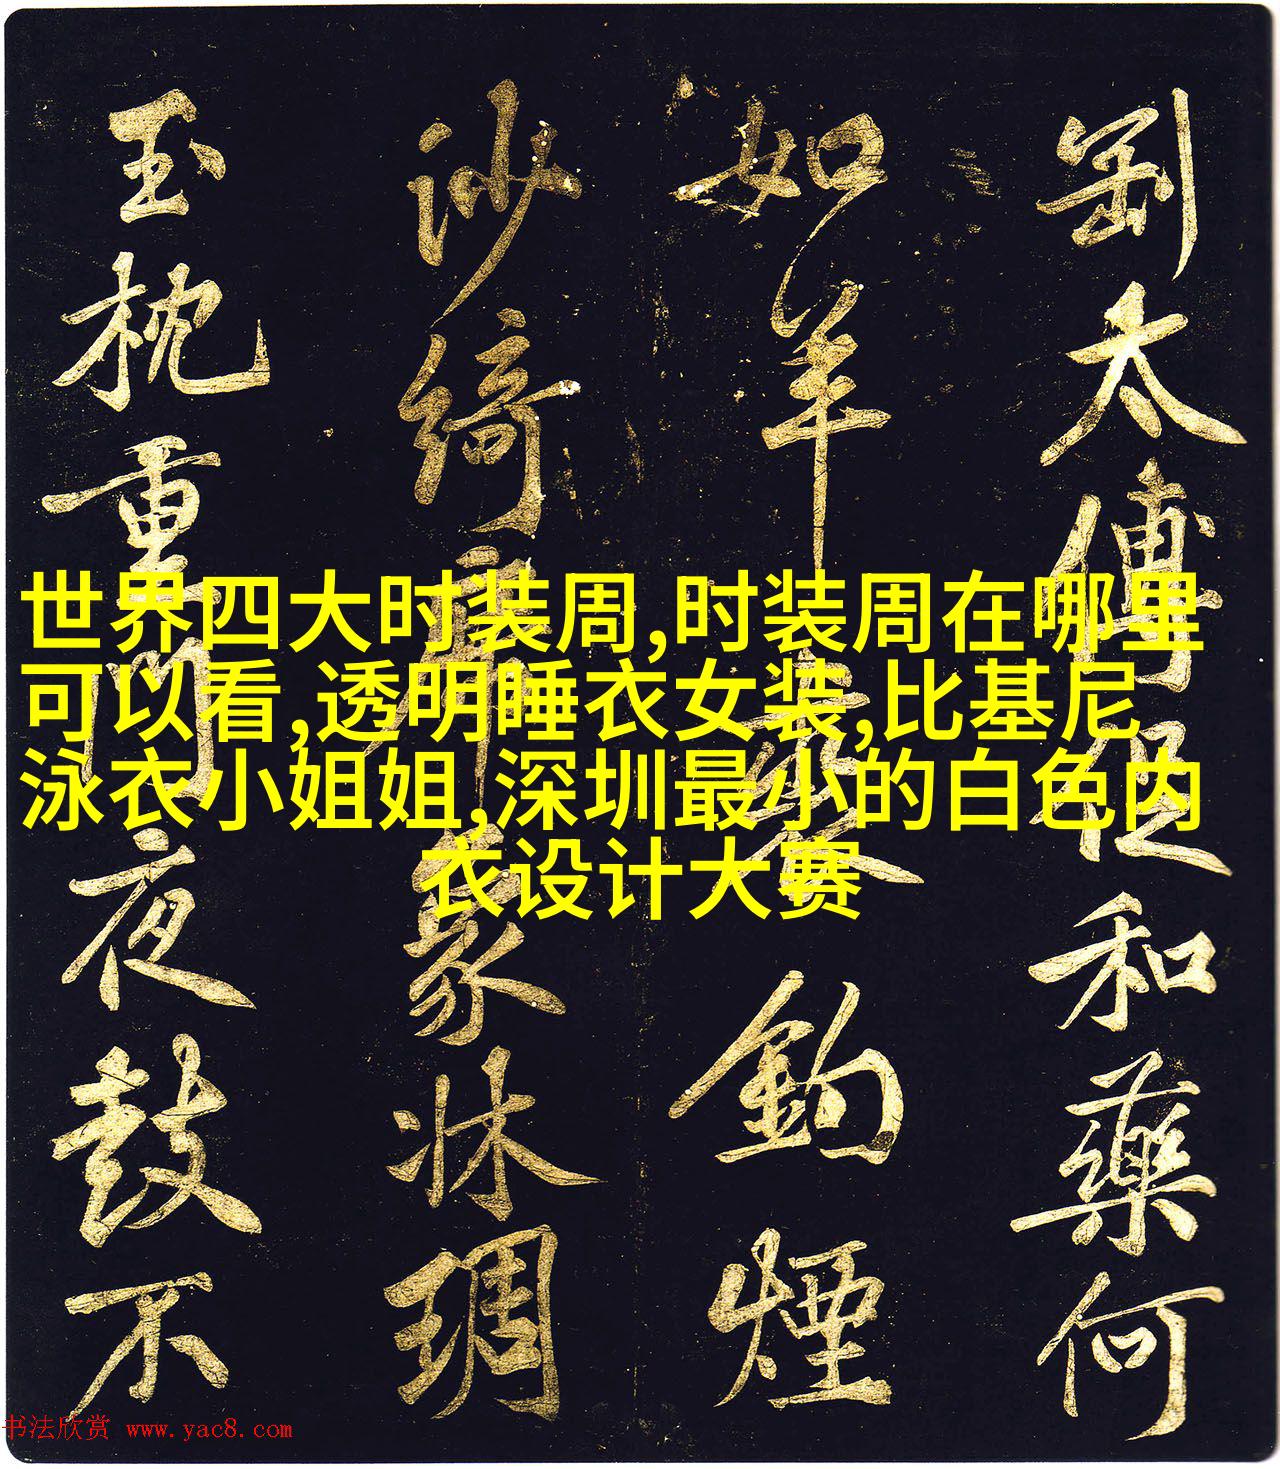 世界四大时装周,时装周在哪里
可以看,透明睡衣女装,比基尼
泳衣小姐姐,深圳最小的白色内
衣设计大赛
太傅促和藥何
如羊鈎煙
沙綺篆牀琱
玉枕重門夜鼓不
书法欣赏 www.yac8.com